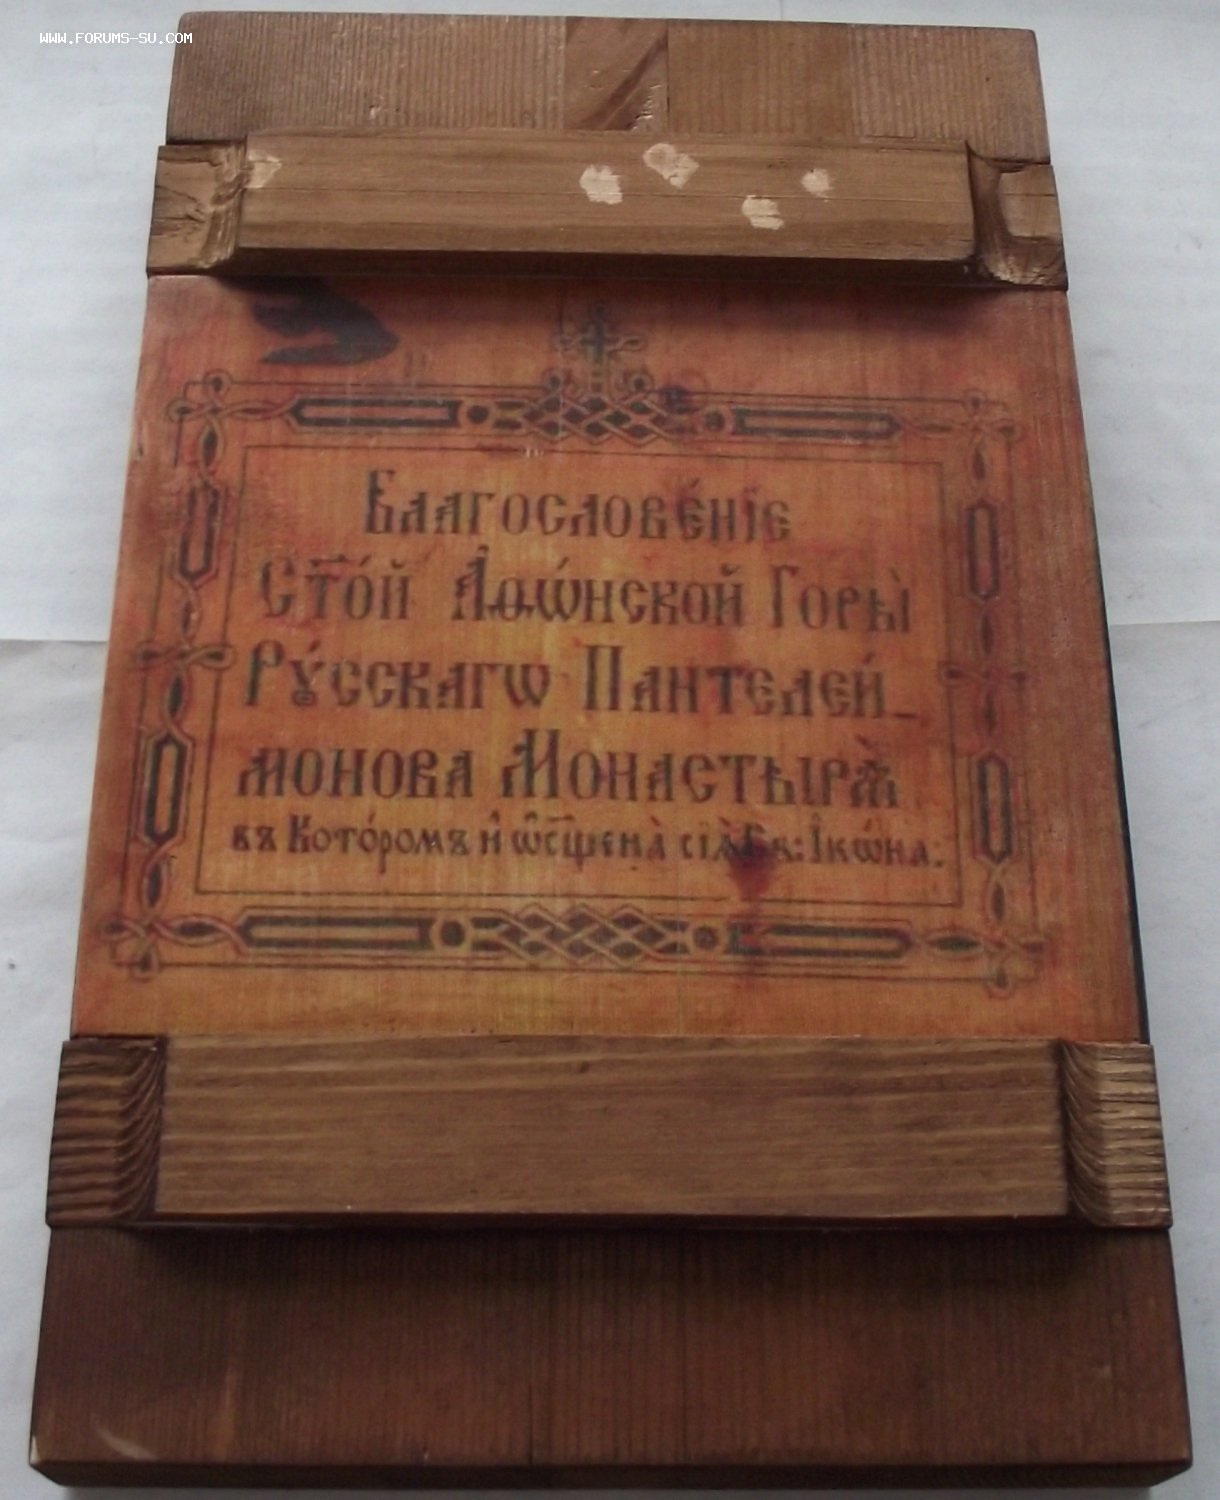 WWW.FORUMS-SU.COM
Благослове́нїе
Ст҃о́й Аѳѡ́нской Горы̀
Рꙋ́сскагѡ Пантелеи́_
монова Монастырѧ̀
въ Кото́ромъ и҆ ѡ҆сщ҃ена̀ сїѧ̀ Св: І҆кѡ́на: